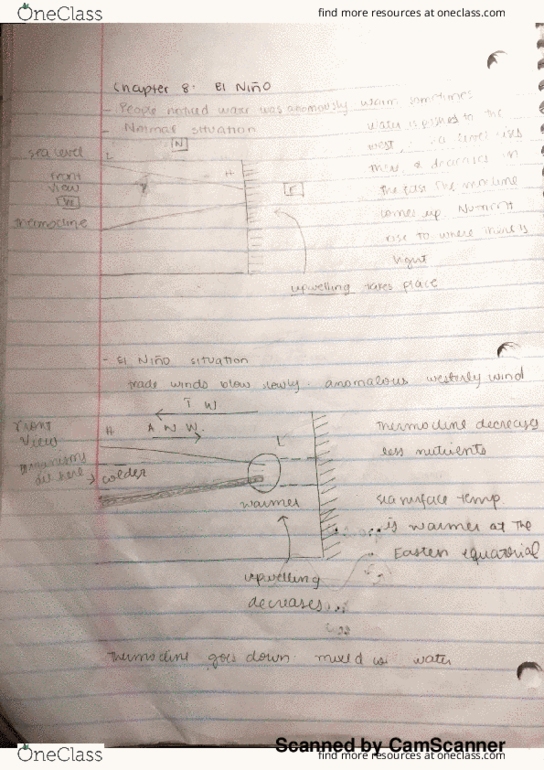 OneClass
find more resources at oneclass.com
Chapter 8: El Niño
- People noticed water was anomously warm sometimes
- Normal situation
N
sea level
L
front
view
W
thermocline
H
E
water is pushed to the
west, sea level rises
more & decreases in
the east. The thermocline
comes up. Nutrient
rise to where there is
light
upwelling takes place
- El Niño situation
trade winds blow slowly. anomalous westerly wind
T W
front
view
H
A N W.
L
organisms
die here
colder
warmer
upwelling
decreases
thermocline decreases
less nutrients
sea surface temp.
is warmer at the
Eastern equatorial
thermocline goes down. mixed water
Scanned by CamScanner
OneClass
find more resources at oneclass.com